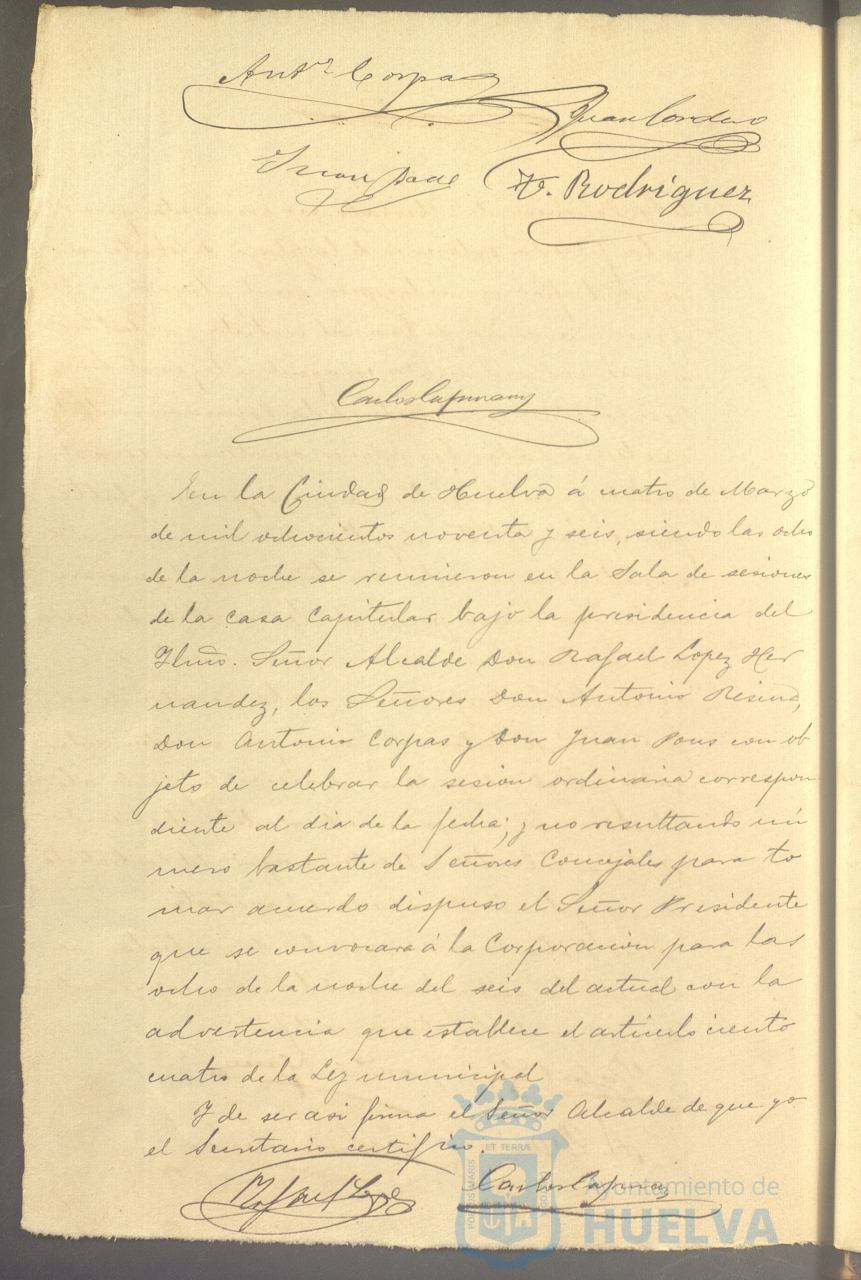 Antº Corpas
Juan Cordero
Juan
F. Rodriguez
Carlos Capmany
En la Ciudad de Huelva á cuatro de Marzo
de mil ochocientos noventa y seis, siendo las ocho
de la noche se reunieron en la Sala de sesiones
de la casa Capitular bajo la presidencia del
Ylmo. Señor Alcalde Don Rafael Lopez Her
nandez, los Señores Don Antonio Resina,
Don Antonio Corpas y Don Juan Pons con ob
jeto de celebrar la sesion ordinaria correspon
diente al dia de la fecha; y no resultando nú
mero bastante de Señores Concejales para to
mar acuerdo dispuso el Señor Presidente
que se convocara á la Corporacion para las
ocho de la noche del seis del actual con la
advertencia que establece el articulo ciento
cuatro de la Ley municipal
Y de ser asi firma el Señor Alcalde de que yo
el Secretario certifico.
Rafael Lopez
Carlos Capmany
ET TERRÆ
Ayuntamiento de
HUELVA